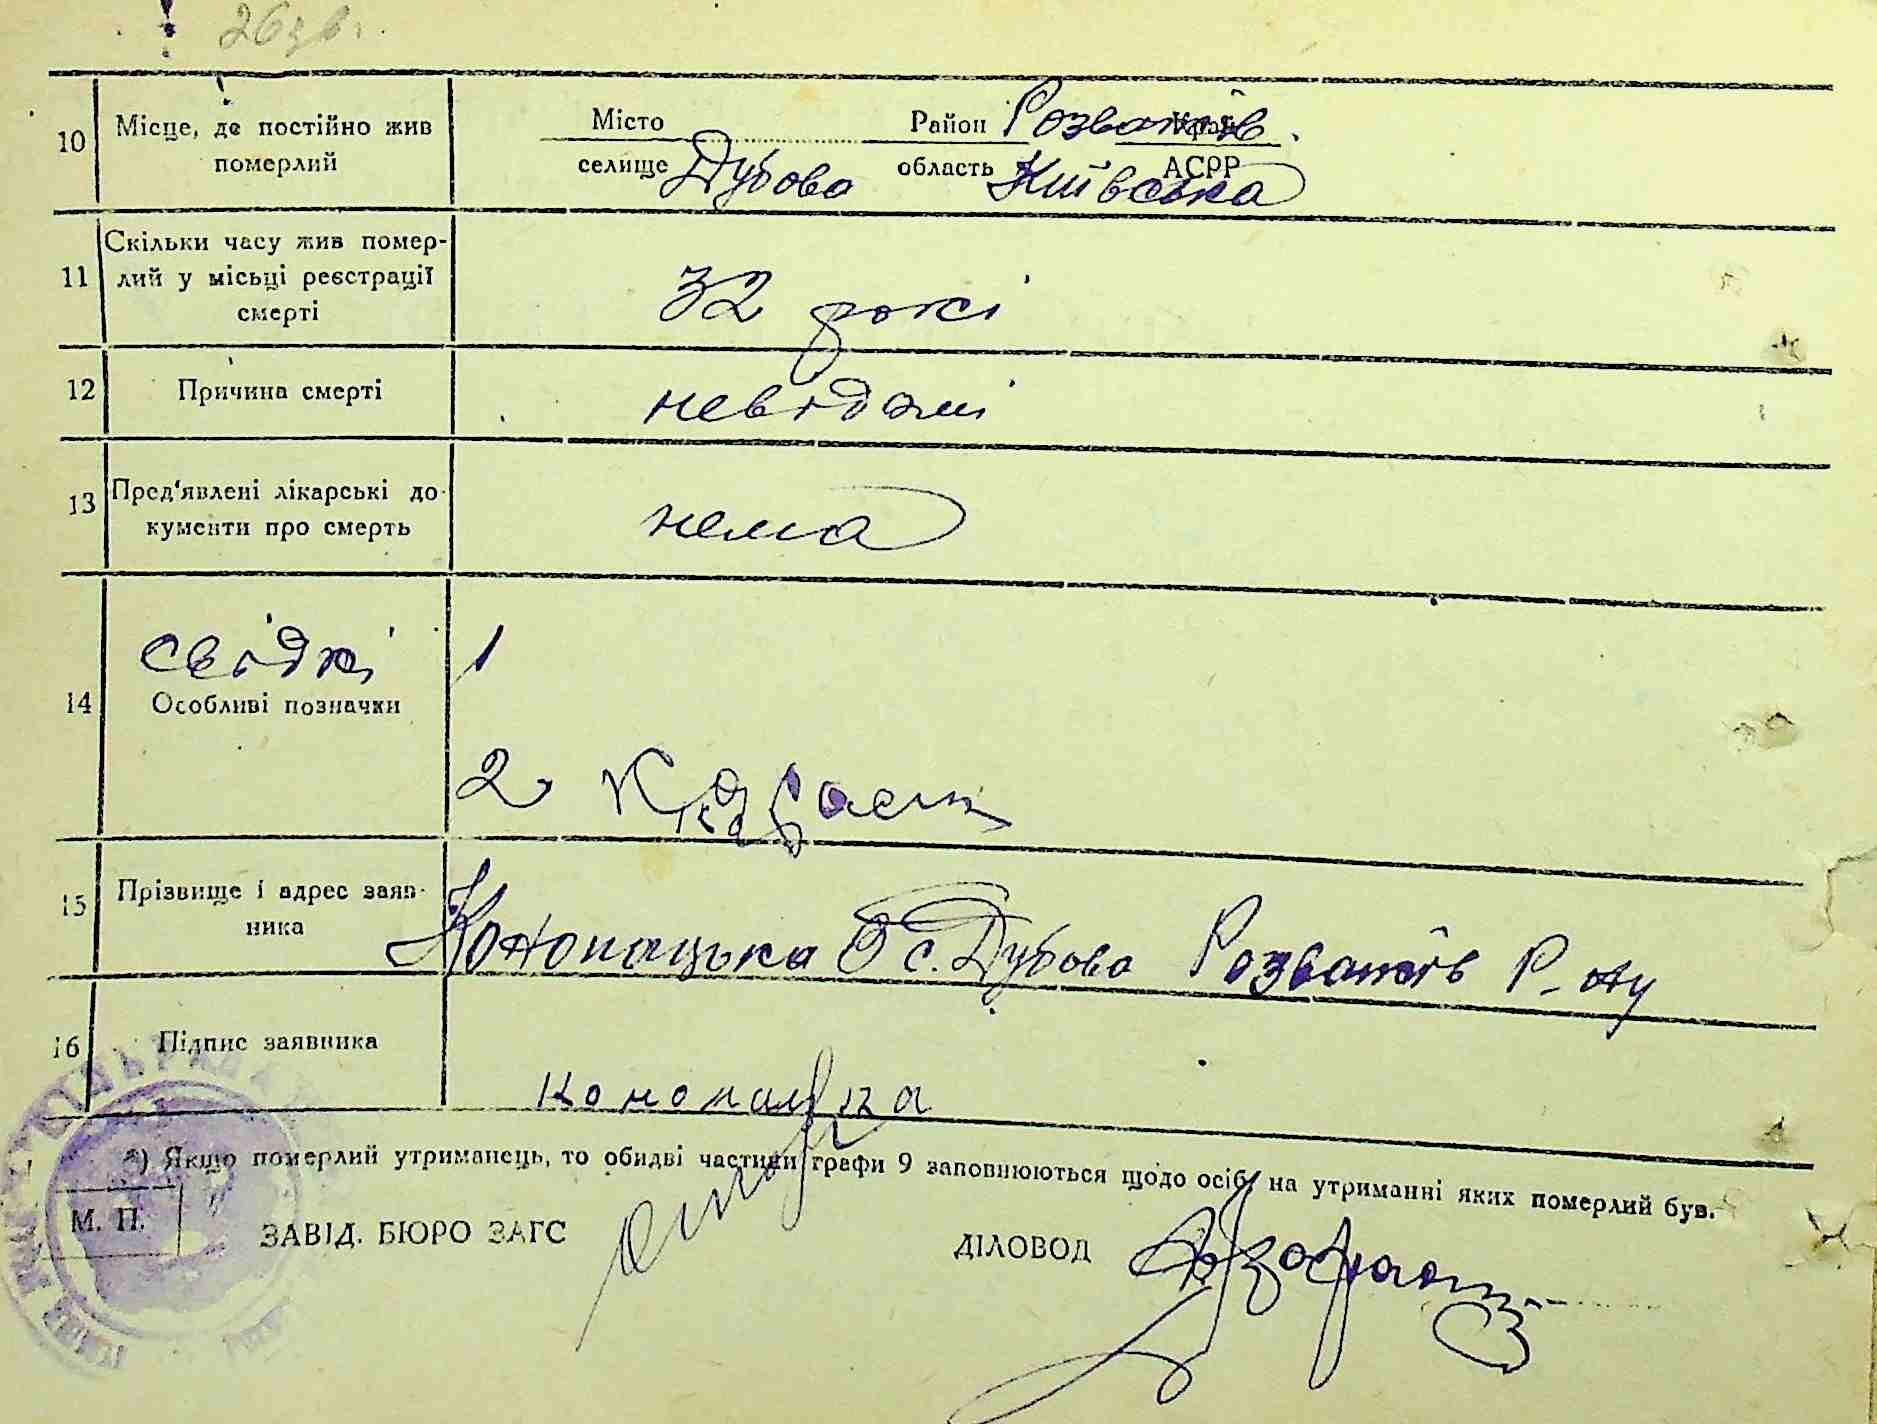 26 зв.
10 Місце, де постійно жив померлий Місто Район Розважїв Край
селище Дубова область Київська АСРР
11 Скільки часу жив помер-
лий у місьці реєстрації
смерті
32 рокі
12 Причина смерті невідомі
13 Пред'явлені лікарські до-
кументи про смерть
нема
свідкі 1
14 Особливі позначки
2
15 Прізвище і адрес заяв-
ника
Конопацька О с. Дубова Розважїв Р-ну
16 Підпис заявника
Конопацка
*) Якщо померлий утриманець, то обидві частини графи 9 заповнюються щодо осіб, на утриманні яких померлий був.
М. П.
ЗАВІД. БЮРО ЗАГС
ДІЛОВОД